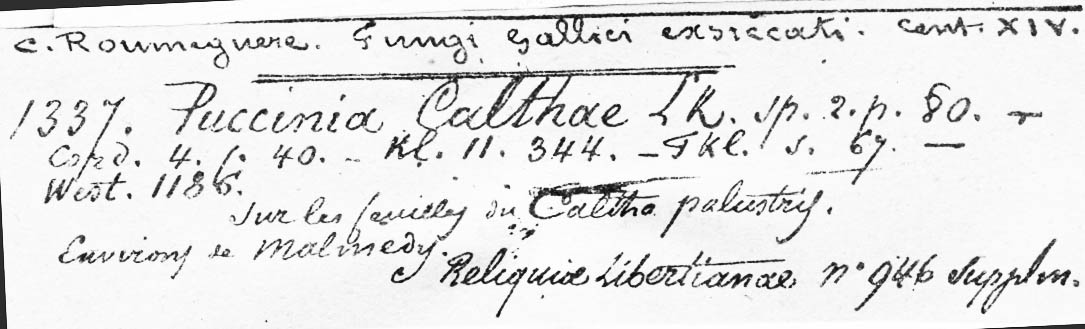 C. Roumeguere. Fungi gallici exsiccati. Cent. XIV.
1337. Puccinia Calthae LK. sp. 2. p. 80. —
Cord. 4. f. 40. — Kl. 11. 344. — FKl. s. 67. —
West. 1186.
Sur les feuilles du Caltha palustris.
Environs de Malmedy.
Reliquiae Libertianae n° 946 Supplm.